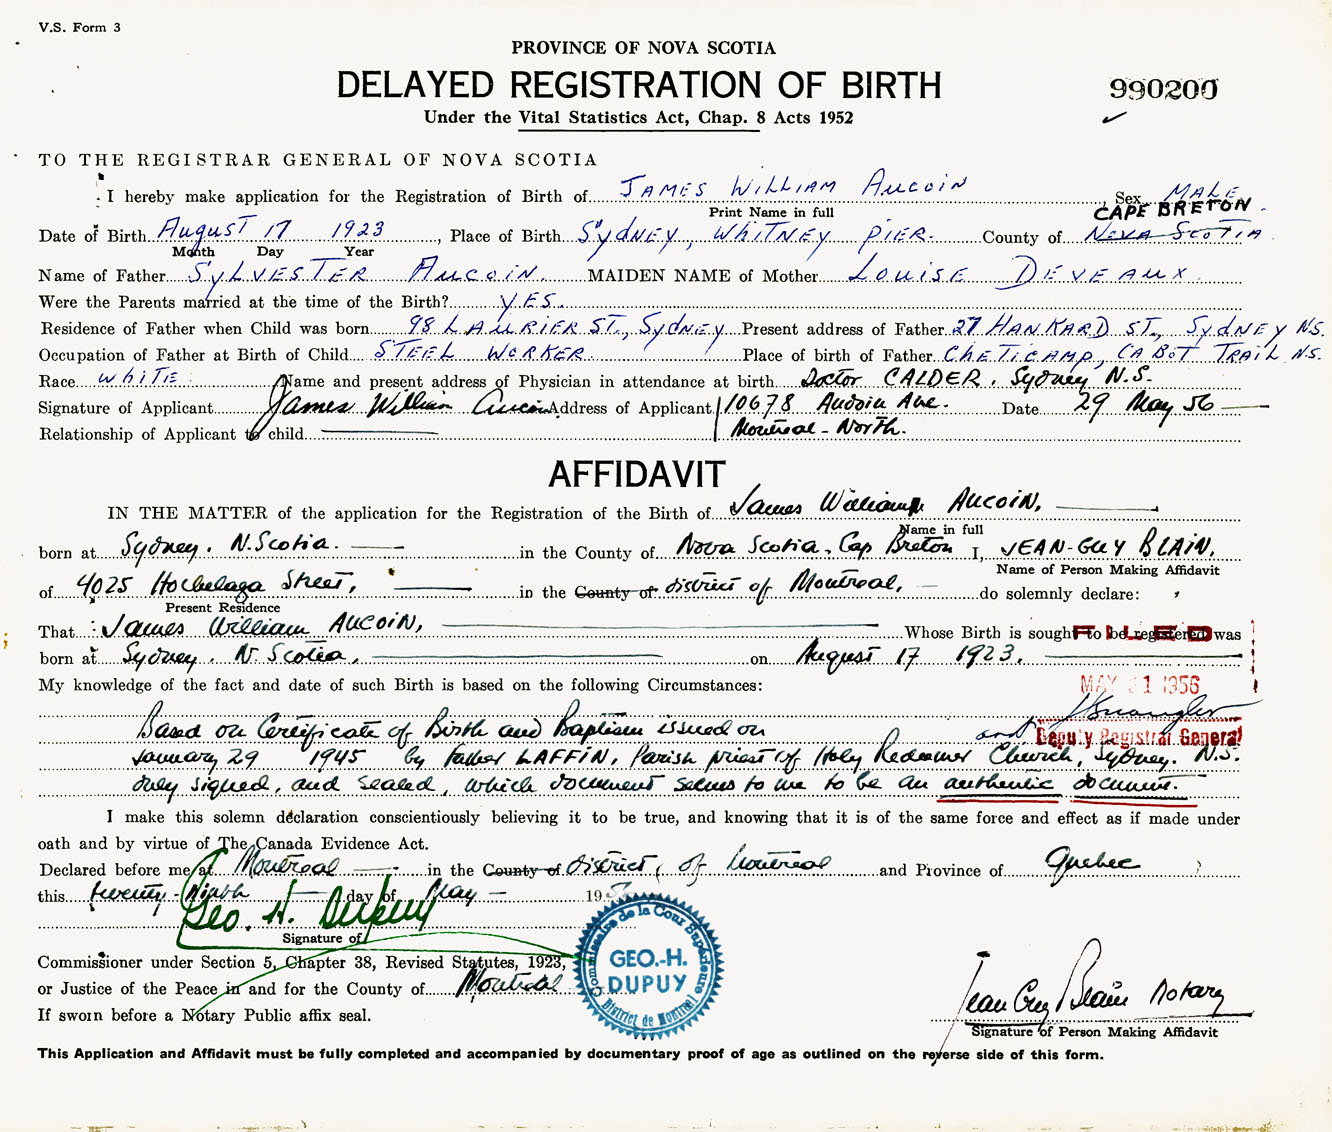 V.S. Form 3
PROVINCE OF NOVA SCOTIA
DELAYED REGISTRATION OF BIRTH
990200
Under the Vital Statistics Act, Chap. 8 Acts 1952
TO THE REGISTRAR GENERAL OF NOVA SCOTIA
I hereby make application for the Registration of Birth of JAMES WILLIAM AUCOIN Sex MALE
Print Name in full
CAPE BRETON
Date of Birth August 17 1923, Place of Birth SYDNEY, WHITNEY PIER. County of NOVA SCOTIA
Month Day Year
Name of Father SYLVESTER AUCOIN. MAIDEN NAME of Mother LOUISE DEVEAUX.
Were the Parents married at the time of the Birth? YES.
Residence of Father when Child was born 98 LAURIER ST., SYDNEY Present address of Father 27 HANKARD ST., SYDNEY N.S.
Occupation of Father at Birth of Child STEEL WORKER. Place of birth of Father CHETICAMP, CABOT TRAIL N.S.
Race WHITE. Name and present address of Physician in attendance at birth Doctor CALDER. Sydney N.S.
Signature of Applicant James William Aucoin Address of Applicant 10678 Audoin Ave. Date 29 May 56
Relationship of Applicant to child Montreal-North.
AFFIDAVIT
IN THE MATTER of the application for the Registration of the Birth of James William AUCOIN.
Name in full
born at Sydney. N.Scotia. in the County of Nova Scotia. Cap Breton I, JEAN-GUY BLAIN,
Name of Person Making Affidavit
of 4025 Hochelaga Street, in the County of district of Montreal, do solemnly declare:
Present Residence
That James William AUCOIN, Whose Birth is sought to be registered was
FILED
born at Sydney. N.Scotia, on August 17 1923.
My knowledge of the fact and date of such Birth is based on the following Circumstances:
MAY 31 1956
Based on Certificate of Birth and Baptism issued on and
Deputy Registrar General
January 29 1945 by Father LAFFIN, Parish priest of Holy Redeemer Church, Sydney. N.S.
duly signed, and sealed, which document seems to me to be an authentic document.
I make this solemn declaration conscientiously believing it to be true, and knowing that it is of the same force and effect as if made under
oath and by virtue of The Canada Evidence Act.
Declared before me at Montreal in the County of district of Montreal and Province of Quebec
this twenty-Ninth day of May 1956
Geo. H. Dupuy
Signature of
Commissioner under Section 5, Chapter 38, Revised Statutes, 1923,
or Justice of the Peace in and for the County of Montreal
If sworn before a Notary Public affix seal.
Commissaire de la Cour Supérieure
GEO.-H. DUPUY
District de Montreal
Jean Guy Blain Notary
Signature of Person Making Affidavit
This Application and Affidavit must be fully completed and accompanied by documentary proof of age as outlined on the reverse side of this form.